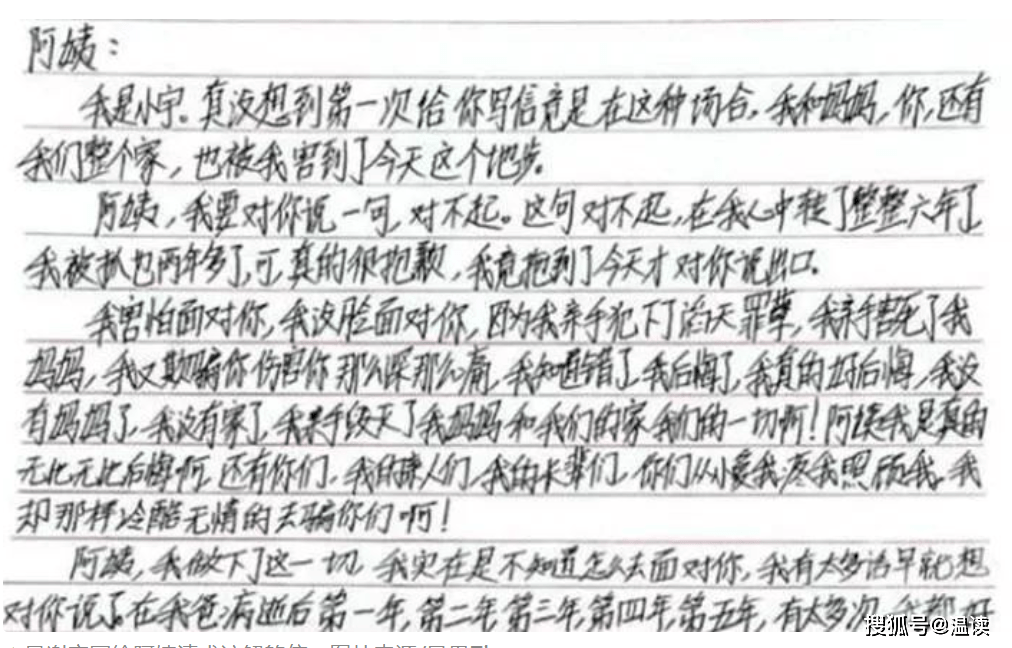 阿姨：
我是小宇。真没想到第一次给你写信竟是在这种场合，我和妈妈，你，还有
我们整个家，也被我害到了今天这个地步。
阿姨，我要对你说一句，对不起。这句对不起，在我心中转了整整六年了
我被抓也两年多了，可真的很抱歉，我竟拖到了今天才对你说出口。
我害怕面对你，我没脸面对你，因为我亲手犯下了滔天罪孽，我亲手害死了我
妈妈，我又欺骗你伤害你那么深那么痛，我知道错了，我后悔了，我真的好后悔，我没
有妈妈了，我没有家了，我亲手毁灭了我妈妈和我们的家我们的一切啊！阿姨我是真的
无比无比后悔啊，还有你们，我的亲人们，我的长辈们，你们从小爱我疼我照顾我，我
却那样冷酷无情的去骗你们啊！
阿姨，我做下了这一切，我实在是不知道怎么去面对你，我有太多话早就想
对你说了。在我爸病逝后第一年，第二年，第三年，第四年，第五年，有太多次，我都好
搜狐号@温读